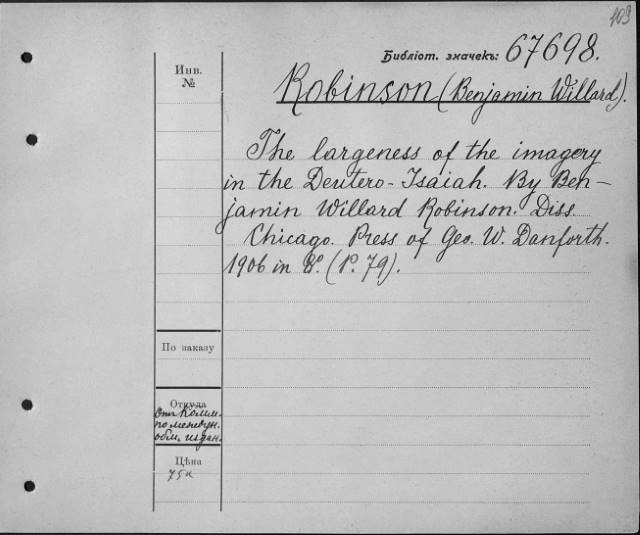 403
Библіот. значекъ: 67698.
Инв.
№
Robinson (Benjamin Willard).
The largeness of the imagery
in the Deutero-Isaiah. By Ben-
jamin Willard Robinson. Diss.
Chicago. Press of Geo. W. Danforth.
1906 in 8º. (P. 79).
По заказу
Откуда
Отъ Комм.
по междун.
обм. издан.
Цѣна
75к